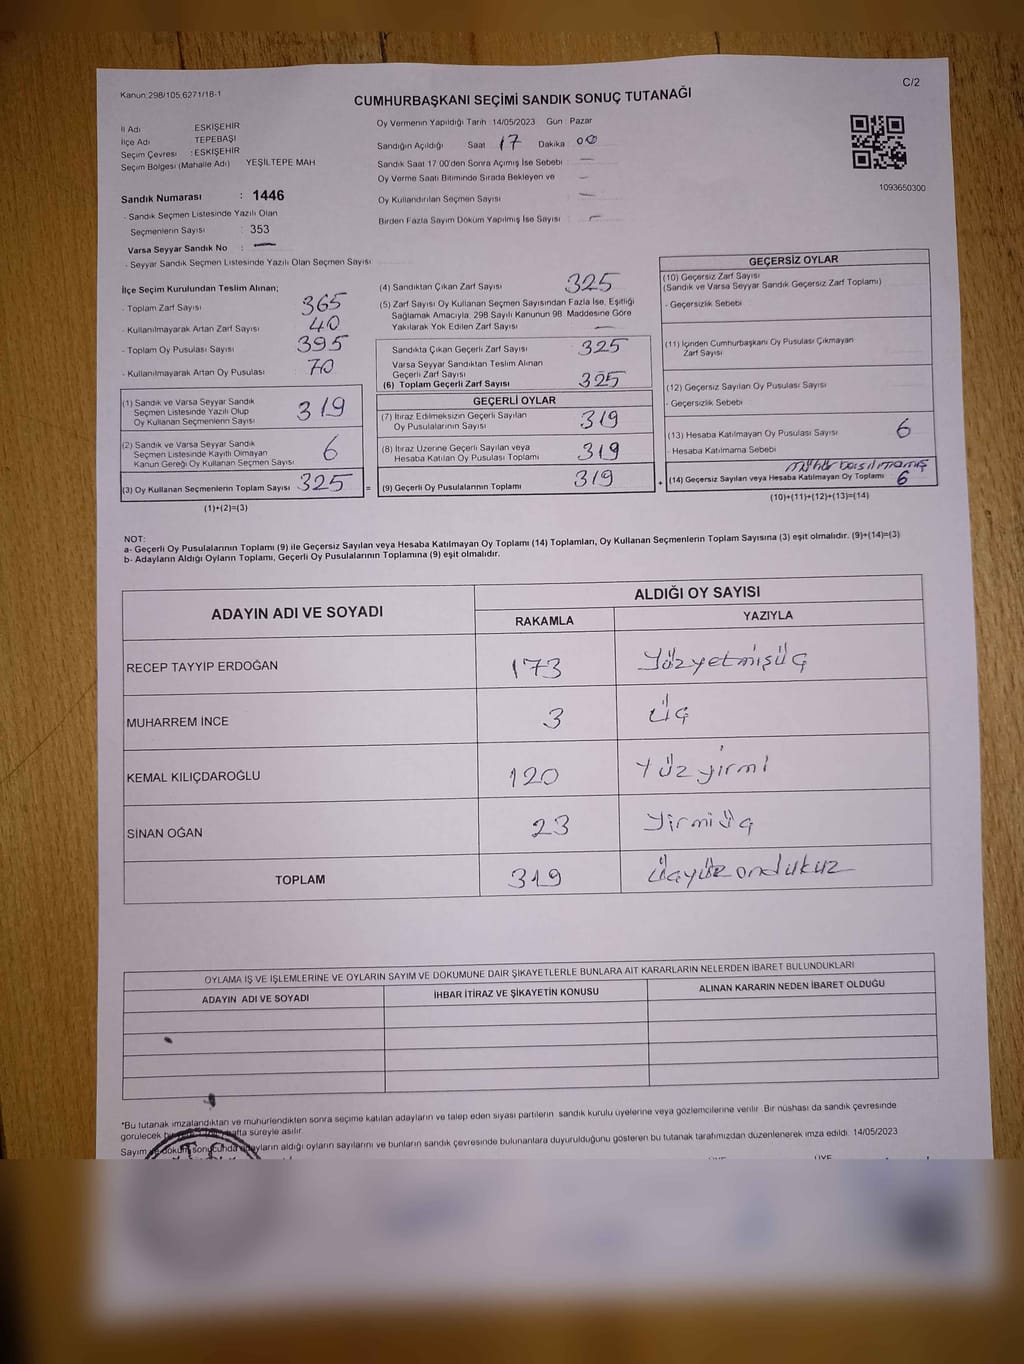 Kanun:298/105,6271/18-1
C/2
CUMHURBAŞKANI SEÇİMİ SANDIK SONUÇ TUTANAĞI
İl Adı ESKİŞEHİR
İlçe Adı TEPEBAŞI
Seçim Çevresi : ESKİŞEHİR
Seçim Bölgesi (Mahalle Adı) YEŞİLTEPE MAH
Sandık Numarası : 1446
- Sandık Seçmen Listesinde Yazılı Olan
Seçmenlerin Sayısı : 353
Varsa Seyyar Sandık No : —
- Seyyar Sandık Seçmen Listesinde Yazılı Olan Seçmen Sayısı:
Oy Vermenin Yapıldığı Tarih : 14/05/2023 Gün : Pazar
Sandığın Açıldığı Saat 17 Dakika 00
Sandık Saat 17:00'den Sonra Açımış İse Sebebi : —
Oy Verme Saati Bitiminde Sırada Bekleyen ve : —
Oy Kullandırılan Seçmen Sayısı : —
Birden Fazla Sayım Döküm Yapılmış İse Sayısı : —
1093650300
İlçe Seçim Kurulundan Teslim Alınan;
- Toplam Zarf Sayısı : 365
- Kullanılmayarak Artan Zarf Sayısı : 40
- Toplam Oy Pusulası Sayısı : 395
- Kullanılmayarak Artan Oy Pusulası : 70
(1) Sandık ve Varsa Seyyar Sandık
Seçmen Listesinde Yazılı Olup
Oy Kullanan Seçmenlerin Sayısı 319
(2) Sandık ve Varsa Seyyar Sandık
Seçmen Listesinde Kayıtlı Olmayan
Kanun Gereği Oy Kullanan Seçmen Sayısı 6
(3) Oy Kullanan Seçmenlerin Toplam Sayısı 325
(1)+(2)=(3)
(4) Sandıktan Çıkan Zarf Sayısı : 325
(5) Zarf Sayısı Oy Kullanan Seçmen Sayısından Fazla İse, Eşitliği
Sağlamak Amacıyla, 298 Sayılı Kanunun 98. Maddesine Göre
Yakılarak Yok Edilen Zarf Sayısı : —
Sandıkta Çıkan Geçerli Zarf Sayısı : 325
Varsa Seyyar Sandıktan Teslim Alınan
Geçerli Zarf Sayısı
(6) Toplam Geçerli Zarf Sayısı : 325
GEÇERLİ OYLAR
(7) İtiraz Edilmeksizin Geçerli Sayılan
Oy Pusulalarının Sayısı : 319
(8) İtiraz Üzerine Geçerli Sayılan veya
Hesaba Katılan Oy Pusulası Toplamı : 319
= (9) Geçerli Oy Pusulalarının Toplamı : 319
GEÇERSİZ OYLAR
(10) Geçersiz Zarf Sayısı
(Sandık ve Varsa Seyyar Sandık Geçersiz Zarf Toplamı)
- Geçersizlik Sebebi
(11) İçinden Cumhurbaşkanı Oy Pusulası Çıkmayan
Zarf Sayısı
(12) Geçersiz Sayılan Oy Pusulası Sayısı
- Geçersizlik Sebebi
(13) Hesaba Katılmayan Oy Pusulası Sayısı : 6
- Hesaba Katılmama Sebebi
mühür basılmamış
+ (14) Geçersiz Sayılan veya Hesaba Katılmayan Oy Toplamı : 6
(10)+(11)+(12)+(13)=(14)
NOT:
a- Geçerli Oy Pusulalarının Toplamı (9) ile Geçersiz Sayılan veya Hesaba Katılmayan Oy Toplamı (14) Toplamları, Oy Kullanan Seçmenlerin Toplam Sayısına (3) eşit olmalıdır. (9)+(14)=(3)
b- Adayların Aldığı Oyların Toplamı, Geçerli Oy Pusulalarının Toplamına (9) eşit olmalıdır.
ADAYIN ADI VE SOYADI ALDIĞI OY SAYISI
RAKAMLA YAZIYLA
RECEP TAYYIP ERDOĞAN 173 Yüzyetmişüç
MUHARREM İNCE 3 Üç
KEMAL KILIÇDAROĞLU 120 Yüzyirmi
SİNAN OĞAN 23 Yirmiüç
TOPLAM 319 Üçyüzondukuz
OYLAMA İŞ VE İŞLEMLERİNE VE OYLARIN SAYIM VE DÖKÜMÜNE DAİR ŞİKAYETLERLE BUNLARA AİT KARARLARIN NELERDEN İBARET BULUNDUKLARI
ADAYIN ADI VE SOYADI İHBAR İTİRAZ VE ŞİKAYETİN KONUSU ALINAN KARARIN NEDEN İBARET OLDUĞU
*Bu tutanak imzalandıktan ve mühürlendikten sonra seçime katılan adayların ve talep eden siyasi partilerin sandık kurulu üyelerine veya gözlemcilerine verilir. Bir nüshası da sandık çevresinde
görülecek hafta süreyle asılır.
Sayım ve döküm sonucunda adayların aldığı oyların sayılarını ve bunların sandık çevresinde bulunanlara duyurulduğunu gösteren bu tutanak tarafımızdan düzenlenerek imza edildi. 14/05/2023